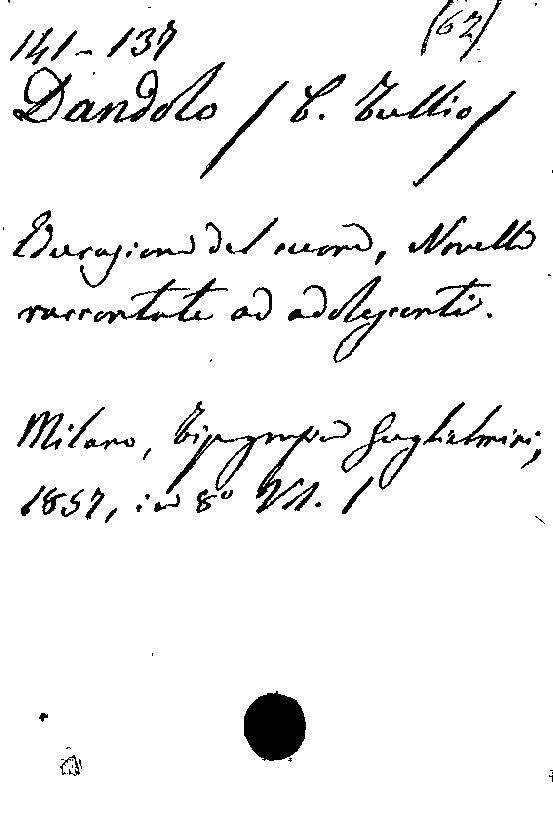 141-137 (62)
Dandolo / C. Tullio /
Educazione del cuore, Novelle
raccontate ad adolescenti.
Milano, Tipografia Guglielmini,
1857, in 8° Vol. 1